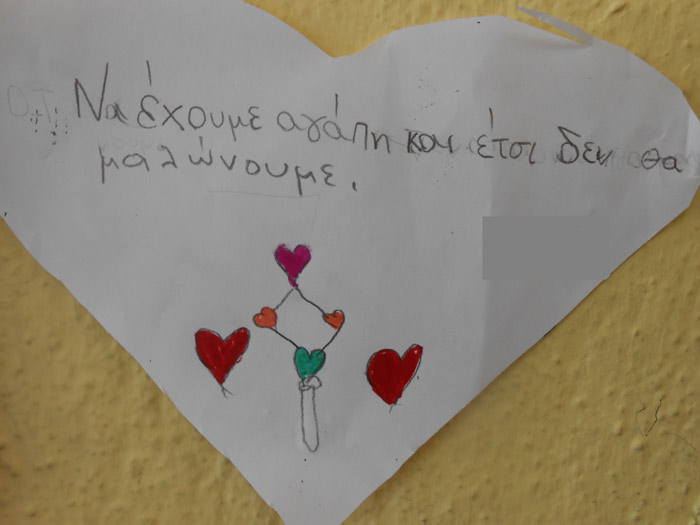 Να έχουμε αγάπη και έτσι δεν θα
μαλώνουμε.